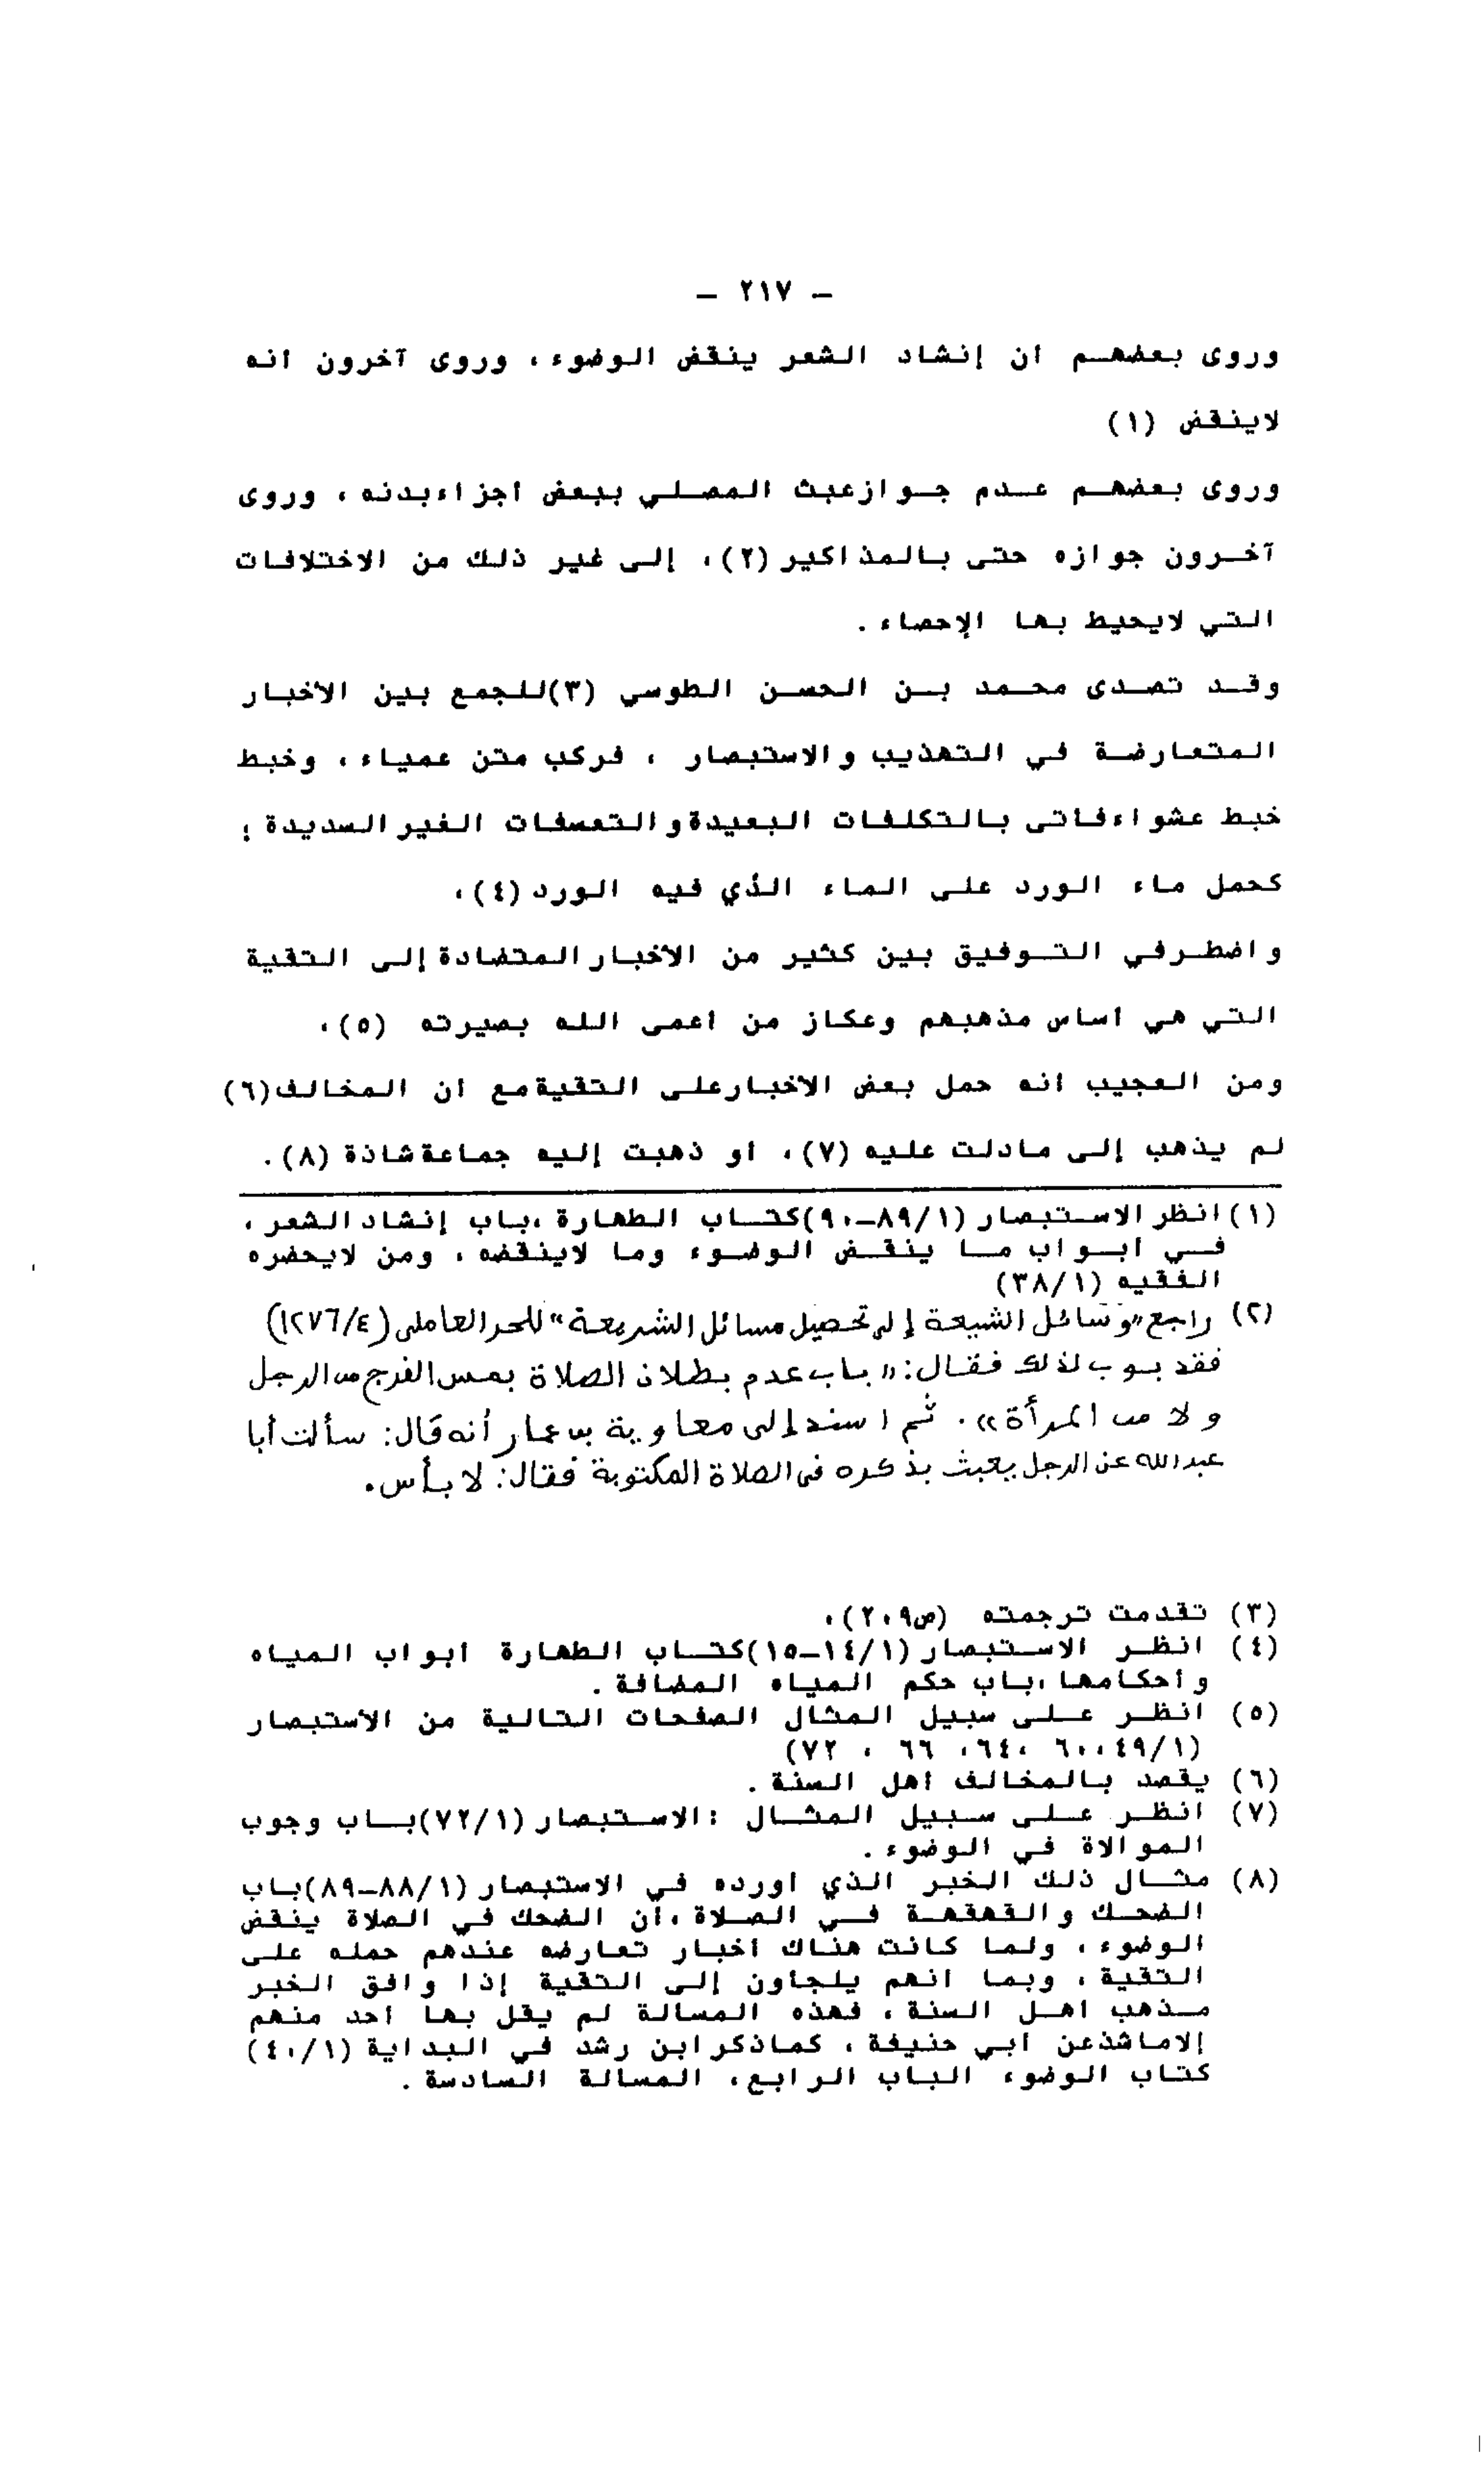 - ٢١٧ -
وروى بعضهم أن إنشاد الشعر ينقض الوضوء، وروى آخرون أنه
لاينقض (١)
وروى بعضهم عدم جواز عبث المصلي ببعض أجزاء بدنه، وروى
آخرون جوازه حتى بالمذاكير (٢)، إلى غير ذلك من الاختلافات
التي لايحيط بها الإحصاء.
وقد تصدى محمد بن الحسن الطوسي (٣) للجمع بين الأخبار
المتعارضة في التهذيب والاستبصار، فركب متن عمياء، وخبط
خبط عشواء فأتى بالتكلفات البعيدة والتعسفات الغير السديدة؛
كحمل ماء الورد على الماء الذي فيه الورد (٤)،
واضطر في التوفيق بين كثير من الأخبار المتضادة إلى التقية
التي هي أساس مذهبهم وعكاز من أعمى الله بصيرته (٥)،
ومن العجيب أنه حمل بعض الأخبار على التقية مع أن المخالف (٦)
لم يذهب إلى مادلت عليه (٧)، أو ذهبت إليه جماعة شاذة (٨).
(١) انظر الاستبصار (١/٨٩-٩٠) كتاب الطهارة، باب إنشاد الشعر،
في أبواب ما ينقض الوضوء وما لاينقضه، ومن لايحضره
الفقيه (١/٣٨)
(٢) راجع «وسائل الشيعة إلى تحصيل مسائل الشريعة» للحر العاملي (٤/١٢٧٦)
فقد بوب لذلك فقال: «باب عدم بطلان الصلاة بمس الفرج من الرجل
ولا من المرأة». ثم أسند إلى معاوية بن عمار أنه قال: سألت أبا
عبدالله عن الرجل يعبث بذكره في الصلاة المكتوبة فقال: لا بأس.
(٣) تقدمت ترجمته (ص٢٠٩)،
(٤) انظر الاستبصار (١/١٤-١٥) كتاب الطهارة أبواب المياه
وأحكامها، باب حكم المياه المضافة.
(٥) انظر على سبيل المثال الصفحات التالية من الأستبصار
(١/٤٩، ٦٠، ٦٤، ٦٦، ٧٢)
(٦) يقصد بالمخالف أهل السنة.
(٧) انظر على سبيل المثال: الاستبصار (١/٧٢) باب وجوب
الموالاة في الوضوء.
(٨) مثال ذلك الخبر الذي أورده في الاستبصار (١/٨٨-٨٩) باب
الضحك والقهقهة في الصلاة، أن الضحك في الصلاة ينقض
الوضوء، ولما كانت هناك أخبار تعارضه عندهم حمله على
التقية، وبما أنهم يلجأون إلى التقية إذا وافق الخبر
مذهب أهل السنة، فهذه المسألة لم يقل بها أحد منهم
إلا ماشذ عن أبي حنيفة، كما ذكر ابن رشد في البداية (١/٤٠)
كتاب الوضوء الباب الرابع، المسألة السادسة.